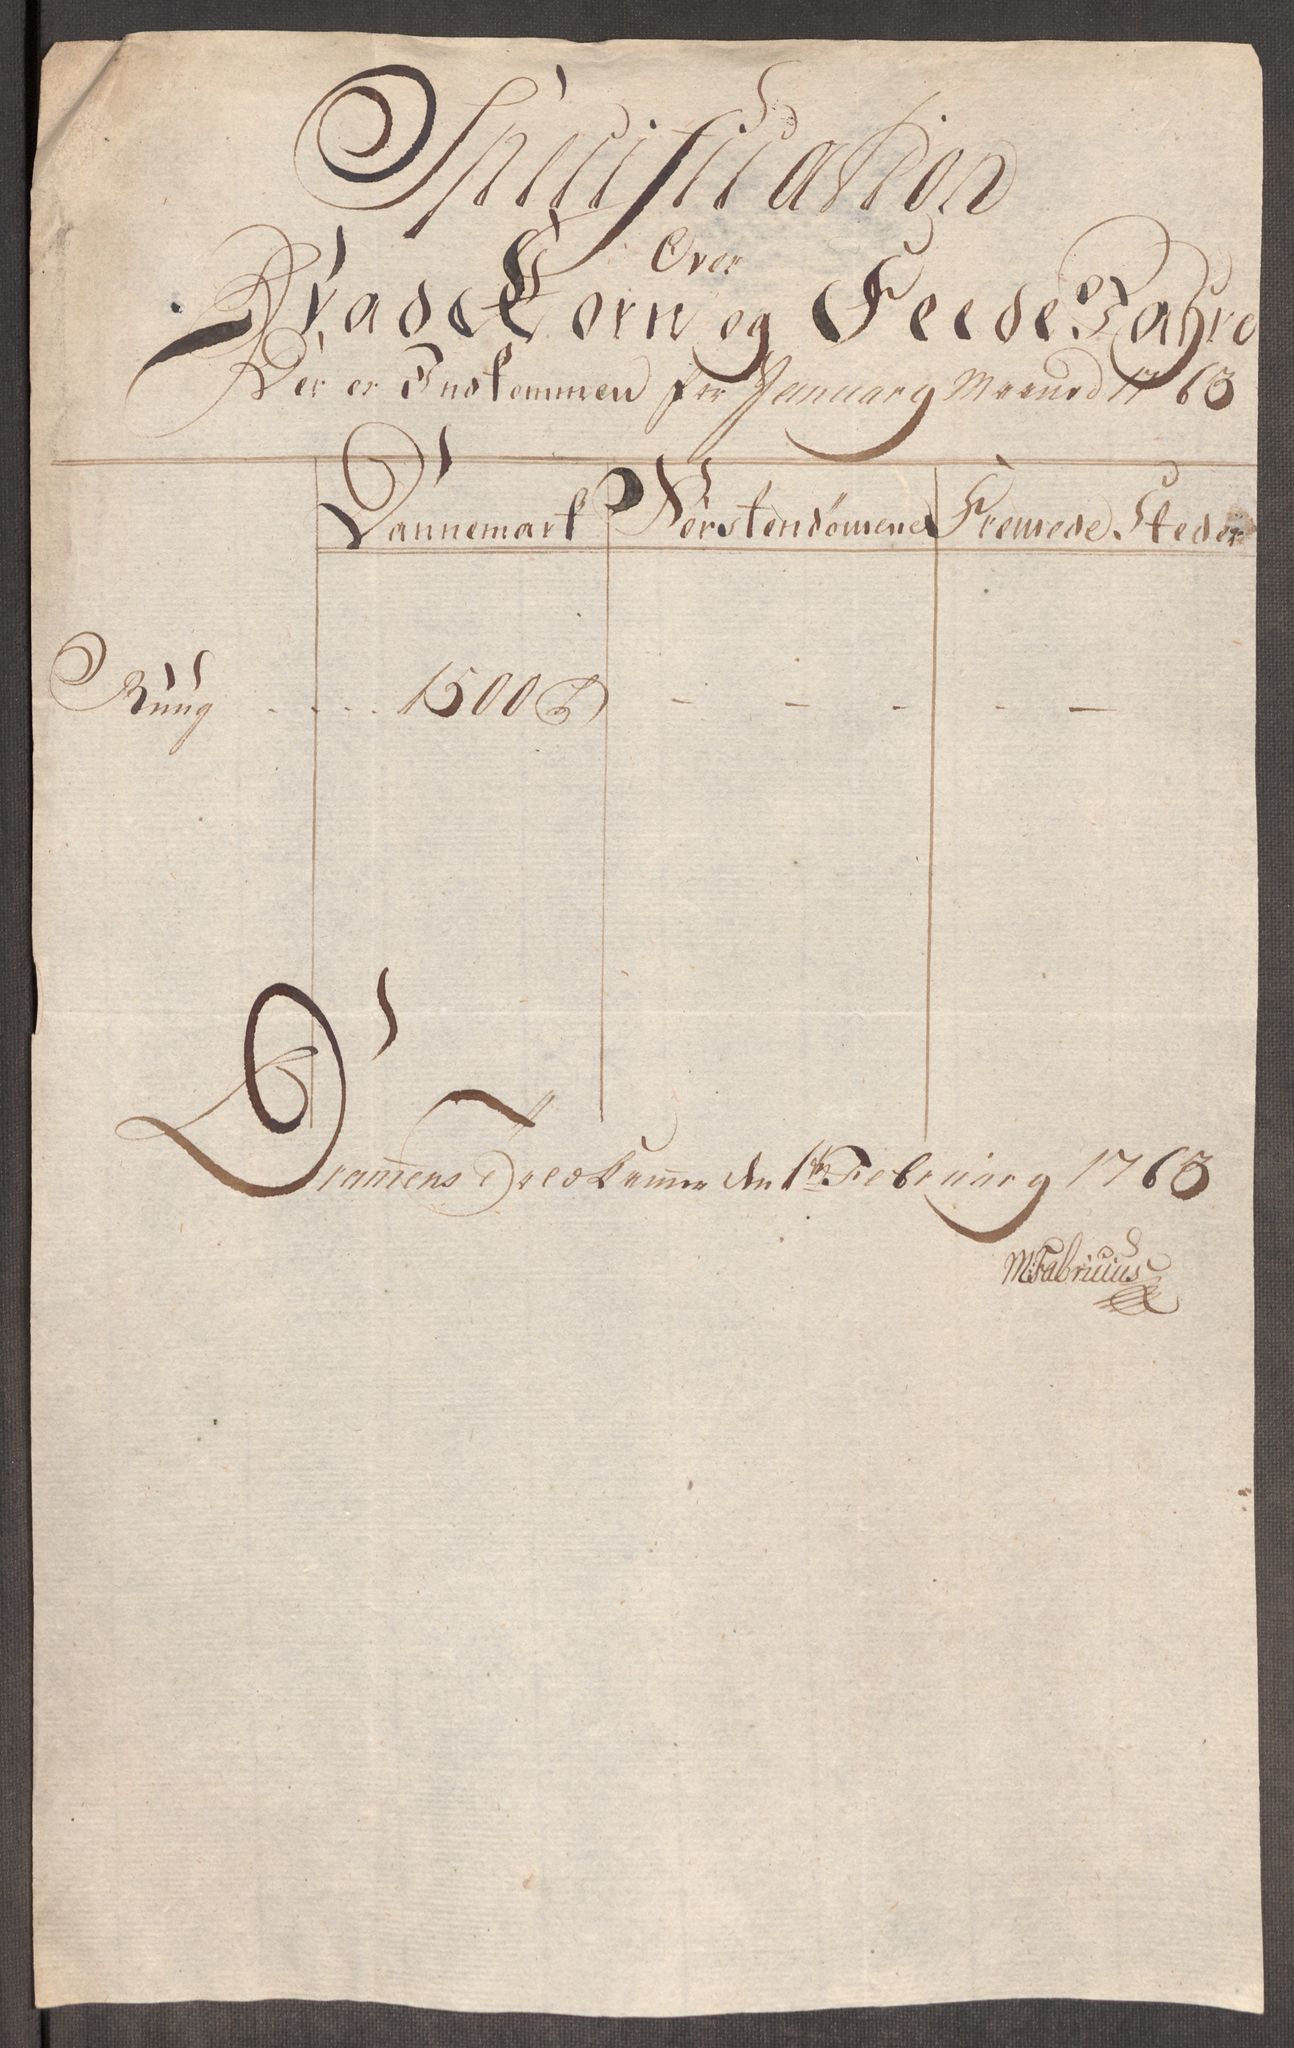 Specification
Over
Hvad Korn og Feede Vahre
Her er Indkommen for January Maaned 1763
Dannemark Førstendømene Fremede Steder
Rúúg - . . . 1500 - - - - -
Dramens Told Kammer den 1ten February 1763
M: Fabricius